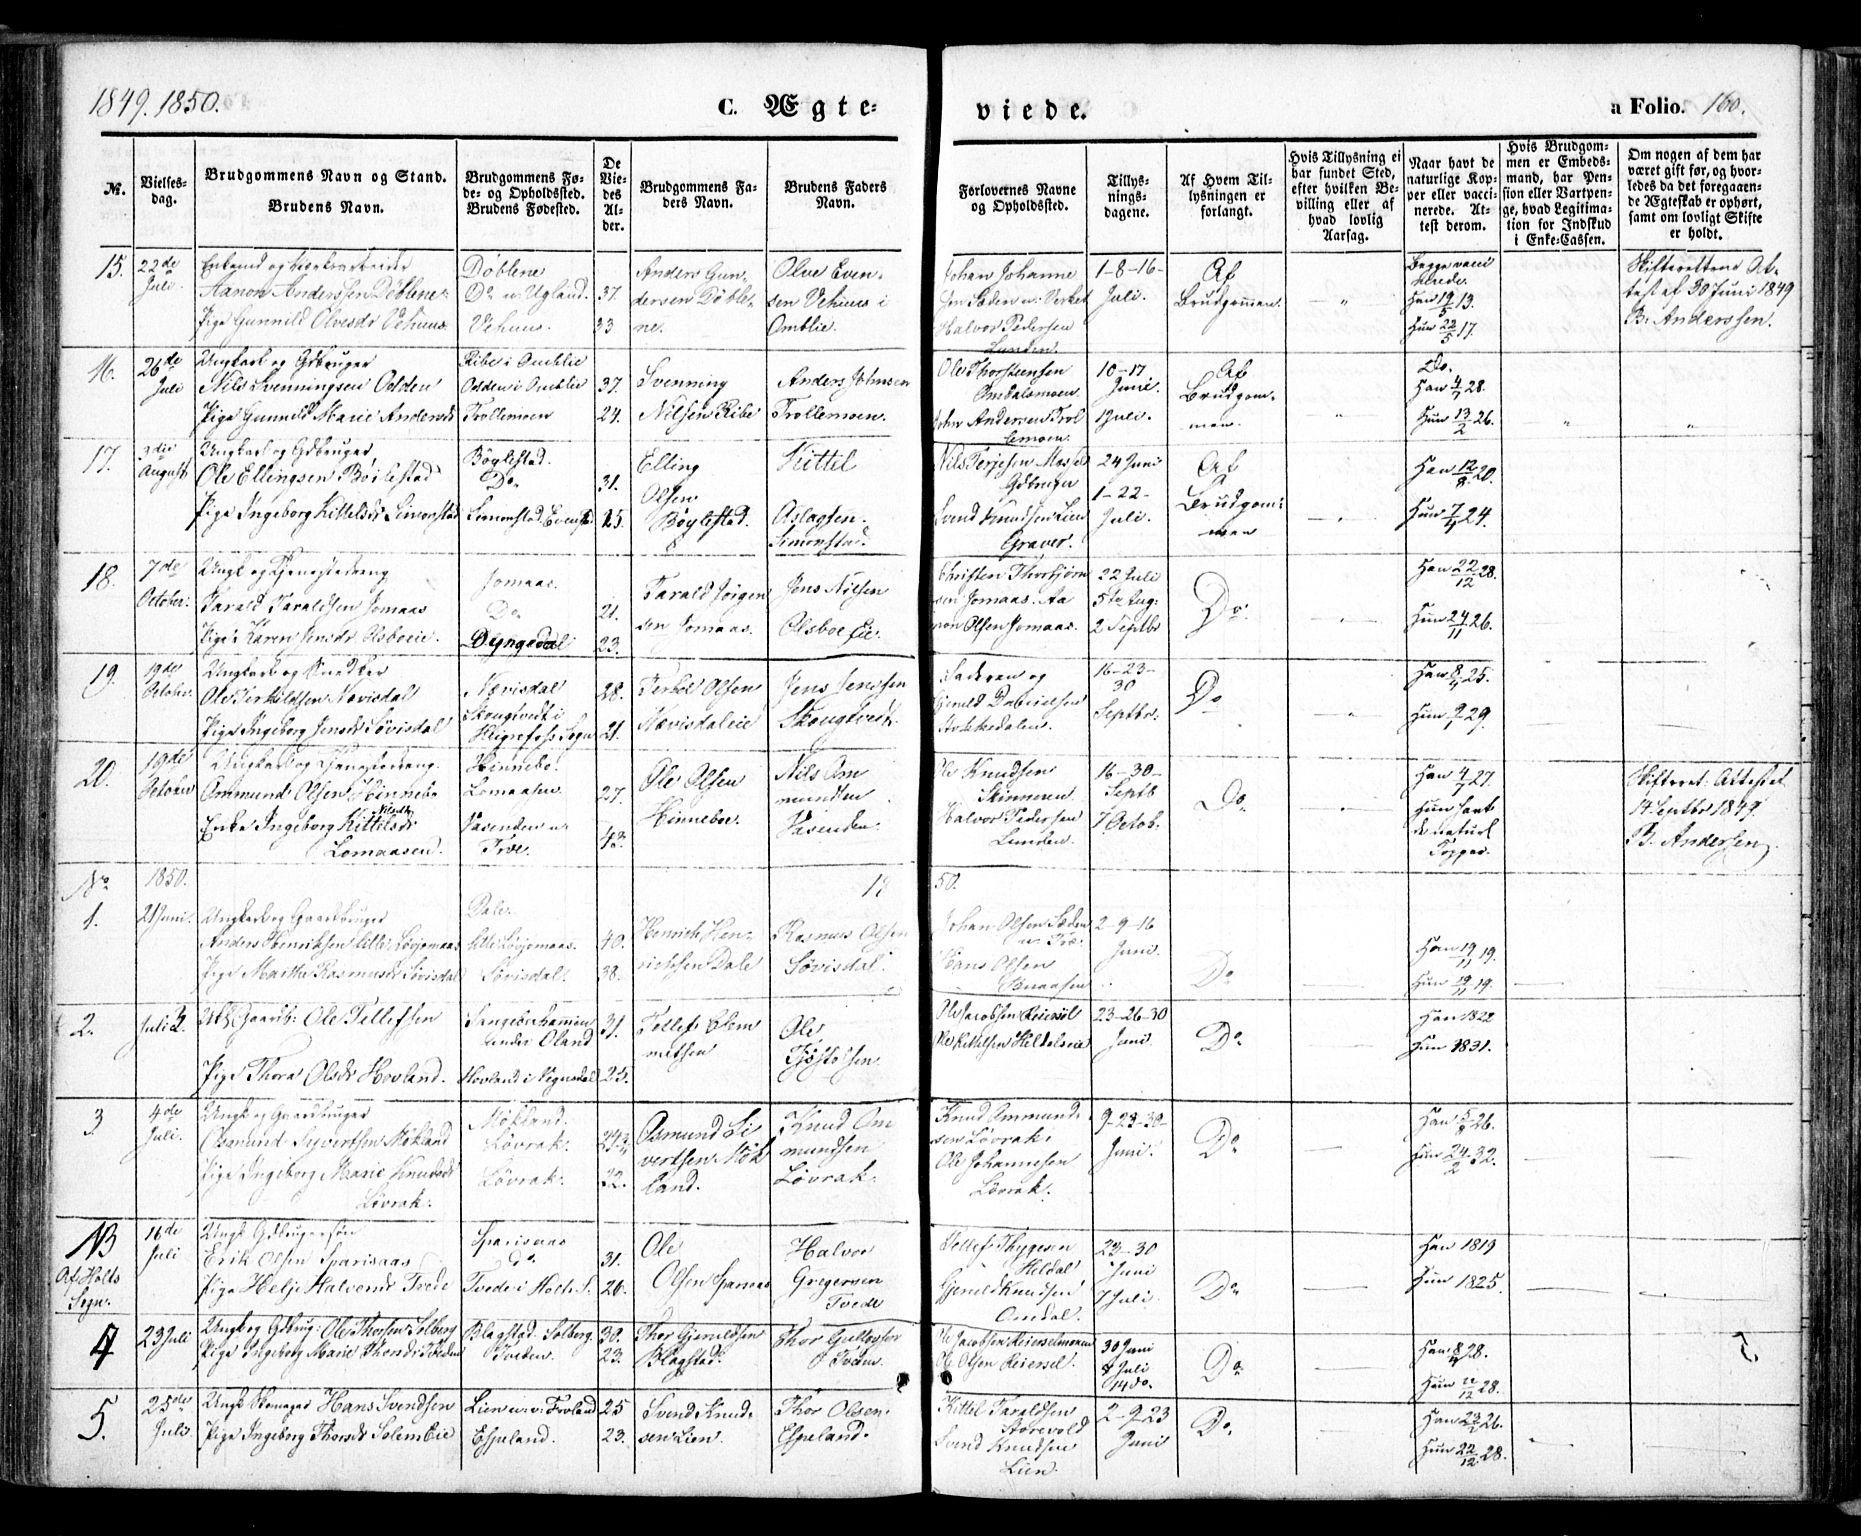 1849. 1850.
C. Ægte-
viede.
a Folio. 160.
№.
Vielses-
dag.
Brudgommens Navn og Stand.
Brudens Navn.
Brudgommens Fø-
de- og Opholdssted.
Brudens Fødested.
De
Vie-
des
Al-
der.
Brudgommens Fa-
ders Navn.
Brudens Faders
Navn.
Forlovernes Navne
og Opholdssted.
Tillys-
nings-
dagene.
Af Hvem Til-
lysningen er
forlangt.
Hvis Tillysning ei
har fundet Sted,
efter hvilken Be-
villing eller af
hvad lovlig
Aarsag.
Naar havt de
naturlige Kop-
per eller vacci-
nerede. At-
test derom.
Hvis Brudgom-
men er Embeds-
mand, har Pen-
sion eller Vartpen-
ge, hvad Legitima-
tion for Indskud
i Enke-Cassen.
Om nogen af dem har
været gift før, og hvor-
ledes da det foregaaen-
de Ægteskab er ophørt,
samt om lovligt Skifte
er holdt.
15. 22de Juli.
Enkemd og Værksarbeider
Aanon Anderssen Døblene
Pige Gunnild Olvesdr Vehuus
Døblene
Do u. Ugland.
Vehuus.
37.
23
Anders Gun-
dersen Døble-
ne.
Olve Even-
sen Vehuus i
Omblie.
Johan Johanne
Halvor Pedersen
Lunden.
1-8-16-
Juli.
Af
Brudgommen.
Begge vacci
nerede.
Han 19/5 13.
Hun 22/5 17.
Skifterettens At-
test af 30 Juni 1849
B. Anderssen.
16. 26de Juli
Ungkarl og Gdbruger
Nils Svenningsen Oelden
Pige Gunnild Marie Andersdr
Ribe i Omblie
Oelden i Omblie
Trollemoen
37.
24.
Svenning
Nilsen Ribe
Anders Johnsen
Trollemoen.
Ole Thorsteensen
Omdalsmoen.
John Andersen Trol
lemoen.
10-17
Juni.
1 Juli.
Af
Brudgom-
men.
Do.
Han 4/7 28.
Hun 13/2 26.
17. 3die August
Ungkarl og Gdbruger
Ole Ellingsen Bøilestad
Pige Ingeborg Kittelsdr Simonstad
Bøylestad.
Do
Simonstad.
31.
25.
Elling
Olsen
Bøylestad.
Kittel
Aslagsen
Simonstad.
Nils Terjesen
Gdbruger
Svend Knudsen Lien
Graver.
24 Juni
1-22-
Juli.
Af
Brudgom-
men
Han 12/8 20.
Hun 7/4 24.
18. 7de October.
Ungk og Tjenestedreng
Tarald Taraldsen Jomaas
Pige Karen Jensdr Olsboeie.
Jomaas.
Do
Dyngedal
21.
23.
Tarald Jørgen
sen Jomaas.
Jens Nilsen
Olsboe Eie.
Christen Thorbjørn
sen Jomaas. Aa
non Olsen Jomaas.
22 Juli
5te Aug:
2 Septbr
Do.
Han 22/12 28.
Hun 24/11 26.
19. 19de October.
Ungkarl og Snedker
Ole Terkildsen Nævisdal
Pige Ingeborg Jensdr Søvisdal
Nævisdal
Skougtvedt i
Heirefoss Sogn
28.
21.
Olsen
Nævisdaleie
Jens Jenssen
Skougtvedt.
Saderen og
16-23-
30
Septbr.
Do
Han 8/4 25.
Hun 9/7 29.
20. 19de October
Ungkarl og Tjenestedreng.
Ommund Olsen Hinnebo
Enke Ingeborg Kittilsdr
Lomaasen.
Hinnebo.
Lomaasen.
Vasenden u.
Froe.
27.
43.
Ole Olsen
Hinneboe.
Nils Om
mundsen
Vasenden.
Ole Knudsen
Skinneren.
Halvor Pedersen
Lunden.
16-30-
Septb
7 Octob.
Do
Han 4/7 27.
Hun havt
de naturl
Kopper.
Skifteret: Attestet
14 Septbr 1849.
B. Anderssen.
No 1850.
18 50.
1. 21 Juni.
Ungkarl og Gaardbruger
Anders Henriksen Lille Løvjomaas
Pige Marthe Rasmusdr Søvisdal
Dale.
Lille Løvjomaas.
Søvisdal.
40.
38.
Henrich Hen-
richsen Dale
Rasmus Olsen
Søvisdal.
Johan Olsen
Hans Olsen
2-9-16
Juni.
Do
Han 19/11 19.
Hun 19/11 19.
2. Juli 2.
Ole Tellefsen
Pige Thora Olsdr Hovland.
under Oland
Hovland i Vegusdal
31.
25.
Tellef Clem
metsen
Ole
Tjøstolsen
Ole Jacobsen Reiersøl
Ole Kittilsen Heldalseie
23-26-30
Juni
Do
Han 1822
Hun 1831.
3. 4de Juli.
Ungk og Gaardbruger
Osmund Syvertsen Møkland
Pige Ingeborg Marie Knudsdr
Løvrak.
Møkland.
Løvrak.
Løvrak.
22.
Osmund Si
vertsen Møk
land.
Knud Om
mundsen
Løvrak.
Knud Ommund-
sen Løvrak.
Ole Johannesen
Løvrak.
9-23-30-
Juni.
Do
Han 5/8 26.
Hun 24/2 32.
NB
Af Holts
Sogn.
16de Juli
Ungk Gdbrugersøn
Erik Olsen Sparisaas
Pige Helje Halvorsdr Tvede
Sparisaas
do
Tvede i Holts S.
31.
26.
Ole
Olsen Sparsaas
Halvor
Gregersen
Tvede
Tellef Thygesen
Heldal
Gjeruld Knudsen
Omdal.
23-30
Juni
7 Juli.
Do
Han 1819
Hun 1825.
4 23 Juli
Ungk og Gdbrug: Ole Thorsen Solberg
Pige Ingeborg Marie Thorsdr Tveden
Blagstad. Solberg.
Tveden.
30.
23.
Thor Gjeruldsen
Blagstad.
Thor
Tveden.
Ole Jacobsen Reierselmoen
Ole Olsen Reiersel.
30 Juni
7 Juli
14 do.
Do
Han 8/4 28.
Hun 22/12 28.
5. 25de Juli
Ungk Skomager Hans Svendsen
Pige Ingeborg Thorsdr Solem Eie
Lien u. v. Froland
Espeland.
25
23.
Svend Knud-
sen Lien.
Thor Olsen.
Espeland.
Kittel Taraldsen
Storevold
Svend Knudsen
Lien.
2-9-23
Juni
Do.
Han 23/1 26.
Hun 22/12 28.